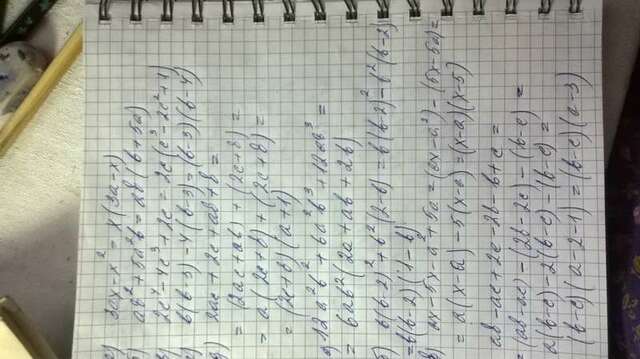 а) 3ax - x² = x(3a - x)
б) ab² + 5a²b = ab(b + 5a)
2c⁴ - 4c³ - 2c = 2c(c³ - 2c² + 1)
b(b-3) - 4(b-3) = (b-3)(b-4)
2ac + 2c + ab + b =
= (2ac + ab) + (2c + b) =
= a(2c + b) + (2c + b) =
= (2c + b)(a + 1)
12a²b² + 6a²b³ + 12ab³ =
= 6ab²(2a + ab + 2b)
б) b(b-2)² + b²(2-b) = b(b-2)² - b²(b-2)
= b(b-2)(1-b)
в) ax - 5x - a² + 5a = (ax - a²) - (5x - 5a) =
= a(x-a) - 5(x-a) = (x-a)(x-5)
ab - ac + 2c - 2b - b + c =
= (ab - ac) - (2b - 2c) - (b - c) =
a(b-c) - 2(b-c) - (b-c) =
(b-c)(a-2-1) = (b-c)(a-3)